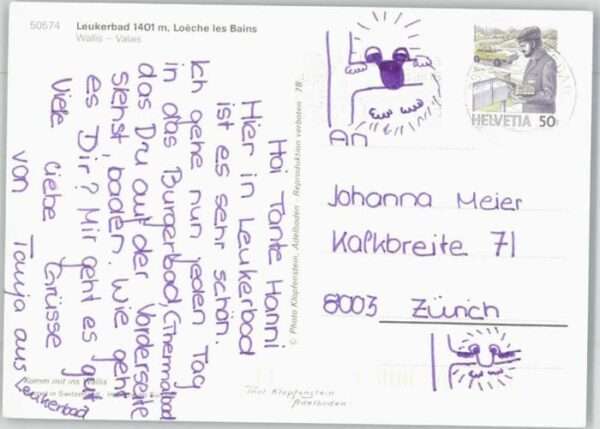 50574
Leukerbad 1401 m, Loèche les Bains
Wallis – Valais
Hoi Tante Hanni
Hier in Leukerbad
ist es sehr schön.
Ich gehe nun jeden Tag
in das Burgerbad, (Thermalbad
das Du auf der Vorderseite
siehst, baden. Wie geht
es Dir? Mir geht es gut
Viele liebe Grüsse
von Tanja aus Leukerbad
Komm mit ins Wallis
© Photo Klopfenstein, Adelboden · Reproduktion verboten
Thst Klopfenstein
Adelboden
HELVETIA 50
An
Johanna Meier
Kalkbreite 71
8003 Zürich